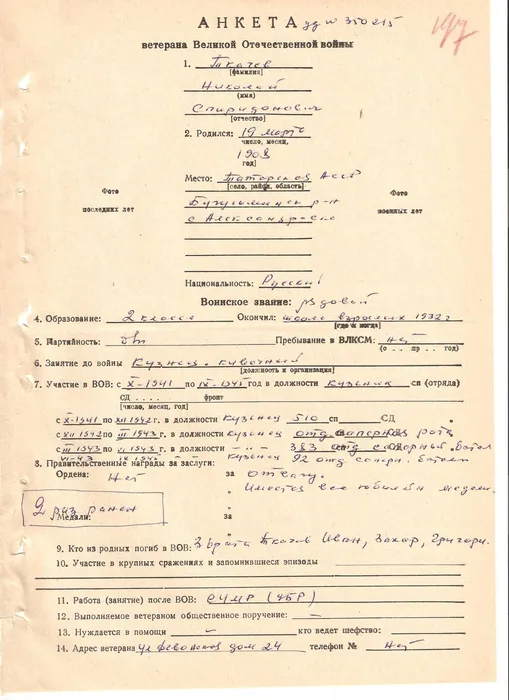 АНКЕТА уд № 350215
197
ветерана Великой Отечественной войны
1. Ткачев
[фамилия]
Николай
(имя)
Спиридонович
[отчество]
2. Родился: 19 марта
число, месяц,
1908
год]
Место: Татарская АССР
[село, район, область]
Бугульминск р-н
с Александровка
Фото
последних лет
Фото
военных лет
Национальность: Русский
Воинское звание: рядовой
4. Образование: 2 класса Окончил: школа взрослых 1932 г
[где и когда]
5. Партийность: б/п Пребывание в ВЛКСМ: нет
(с . . . пр . . год)
6. Занятие до войны Кузнец
[должность и организация]
7. Участие в ВОВ: с X-1941 по IX-1945 год в должности Кузнец сп (отряда)
СД . . . . фронт
[число, месяц, год]
с X-1941 по XII 1942 г. в должности кузнец 510 сп СД „
с XII 1942 по III 1943 г. в должности кузнец отд. саперная рота
с III 1943 по VI 1943 г. в должности „ 383 отд саперный. батал
VI-43 IX 1945 кузнец 92 отд. сапер. батал
8. Правительственные награды за заслуги:
Ордена: Нет за отвагу.
„ Имеются все юбилейн медали.
2 раз ранен
Медали: за
9. Кто из родных погиб в ВОВ: 3 брата Ткачов Иван, Захар, Григори.
10. Участие в крупных сражениях и запомнившиеся эпизоды
11. Работа (занятие) после ВОВ: СУМР (УБР)
12. Выполняемое ветераном общественное поручение: —
13. Нуждается в помощи — кто ведет шефство:
14. Адрес ветерана ул дом 24 телефон № Нет